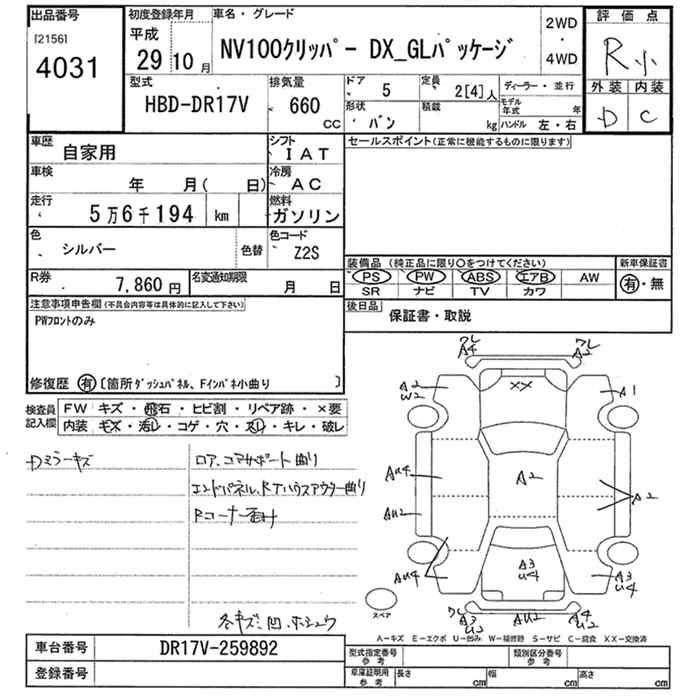 出品番号
[2156]
4031
初度登録年月
平成
29 10 月
車名・グレード
NV100クリッパー DX_GLパッケージ
2WD
・
4WD
評価点
R 小
外装 内装
D C
型式
HBD-DR17V
排気量
660
CC
ドア 5
定員 2[4]人
形状 バン
積載 kg
ディーラー・並行
モデル年式 年
ハンドル 左・右
車歴 自家用
シフト IAT
車検 年 月( 日)
冷房 AC
走行 5万6千194 km
燃料 ガソリン
色 シルバー 色替
色コード Z2S
R券 7,860円
名変通知期限 月 日
セールスポイント(正常に機能するものに限ります)
装備品(純正品に限り○をつけてください)
PS PW ABS エアB AW
SR ナビ TV カワ
新車保証書
有・無
後日品 保証書・取説
注意事項申告欄(不具合内容等は具体的に記入して下さい)
PWフロントのみ
修復歴 有[箇所ダッシュパネル、Fインパネ小曲り ]
検査員記入欄
FW キズ・飛石・ヒビ割・リペア跡・×要
内装 キズ・汚レ・コゲ・穴・スレ・キレ・破レ
Dミラーキズ
ロア、コアサポート曲り
エンドパネル、Rタイハウスアウター曲り
Rコーナー面付
各キズ、凹、ホシュウ
ワレ
A4
ワレ
A2
A2
W2
XX
A1
AU4
A2
A2
AU2
AU4
A3
U4
A3
U4
ワレ
A3
U2
AU2
A4
ワレ
U2
スペア
A-キズ E-エクボ U-凹み W-補修跡 S-サビ C-腐食 XX-交換済
車台番号 DR17V-259892
登録番号
型式指定番号
参考
類別区分番号
参考
車庫証明用
参考
長さ cm
幅 cm
高さ cm